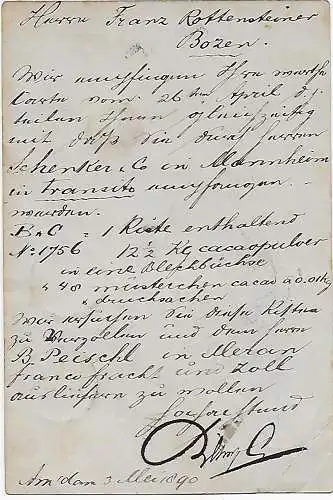 Herrn Franz Rottensteiner
Bozen.
Wir empfingen Ihre werthe
Carte vom 26ten April d.
teilen Ihnen gleichzeitig
mit daß Sie durch Herren
Schenker & Co in Mannheim
in transito empfangen
werden.
B & C = 1 Kiste enthaltend
No 1756 12½ Kg cacaopulver
in eine Blechbüchse
" 48 musterchen cacao à 0.01kg
" drucksachen
Wir ersuchen Sie diese Kisten
zu verzollen und dem Herrn
B Peischl in Meran
franco fracht und Zoll
ausliefern zu wollen
Hochachtend
Am'dam 3 Mei 1890